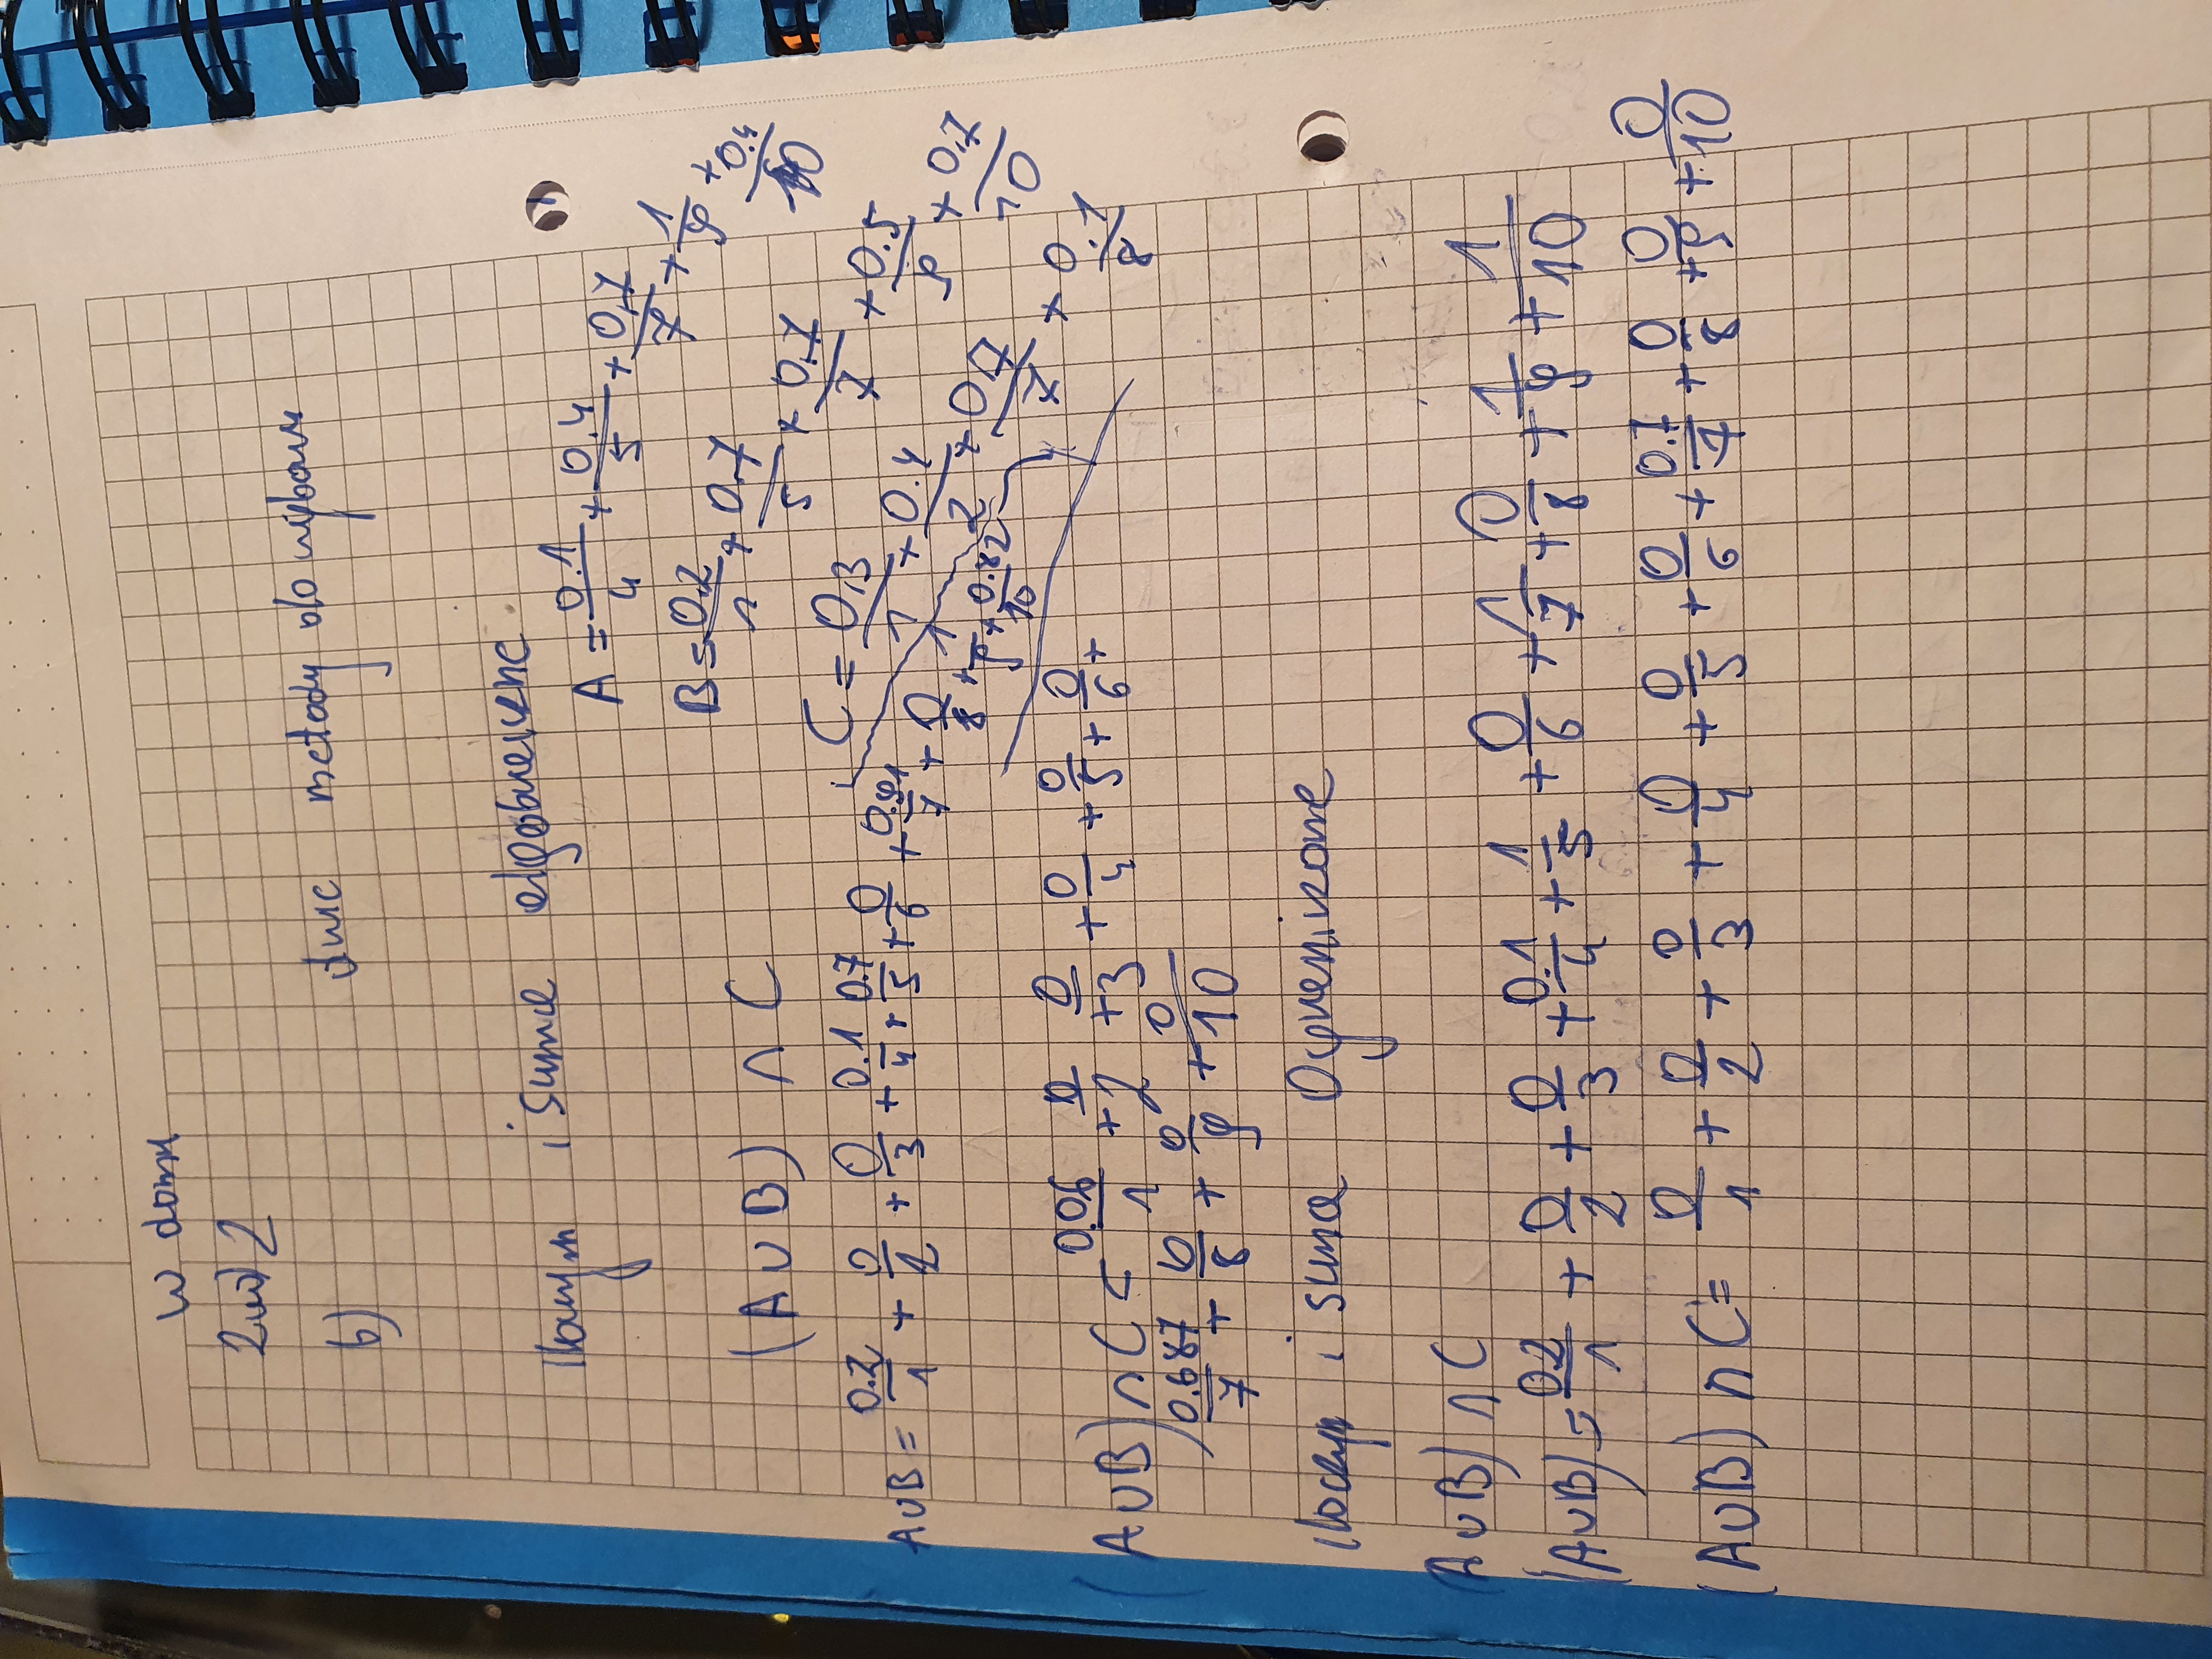 w domu
Zad 2
b) dwie metody do wyboru
Iloczyn i suma algebraiczne
A = 0.1/4 + 0.4/5 + 0.7/7 + 1/9 + 0.4/10
B = 0.2/1 + 0.7/5 + 0.7/7 + 0.5/9 + 0.7/10
(A∪B) ∩ C
C = 0.3/1 + 0.4/2 + 0.7/7 + 0.1/8
A∪B = 0.2/1 + 0/2 + 0/3 + 0.1/4 + 0.7/5 + 0/6 + 0.91/7 + 0/8 + 1/9 + 0.82/10
(A∪B) ∩ C = 0.06/1 + 0/2 + 0/3 + 0/4 + 0/5 + 0/6 +
0.687/7 + 0/8 + 0/9 + 0/10
Iloczyn i suma Ograniczone
A∪B) ∩ C
(A∪B) = 0.2/1 + 0/2 + 0/3 + 0.1/4 + 1/5 + 0/6 + 1/7 + 0/8 + 1/9 + 1/10
(A∪B) ∩ C = 0/1 + 0/2 + 0/3 + 0/4 + 0/5 + 0/6 + 0.7/7 + 0/8 + 0/9 + 0/10